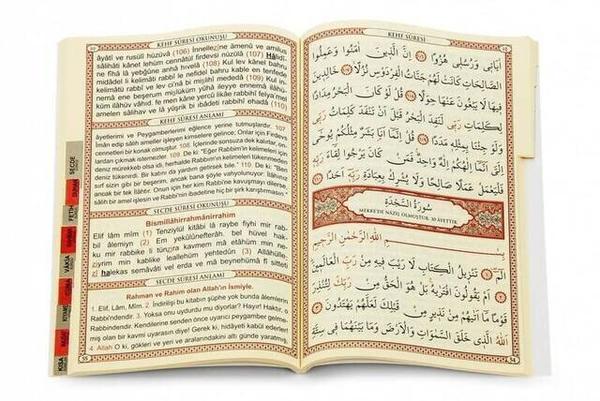 KEHF SÛRESİ OKUNUŞU
âyâtî ve rusulî hüzüvâ (106) İnnellezine âmenû ve amilus
sâlihâti kânet lehüm cennâtül firdevsi nüzülâ (107) Hâlidî-
ne fîhâ lâ yebğûne anhâ hivelâ (108) Kul lev kânel bahru
midâdel li kelimâti rabbî le nefidel bahru kable en tenfede
kelimâtü rabbî ve lev ci'nâ bi mislihî mededâ (109) Kul in-
nemâ ene beşerum mislüküm yûhâ ileyye ennemâ ilâhü-
küm ilâhüv vâhid. fe men kâne yercû likâe rabbihî felya'mel
amelen sâlihav ve lâ yüşrik bi ıbâdeti rabbihî ehadâ (110)
KEHF SÛRESİ ANLAMI
âyetlerimi ve Peygamberlerimi eğlence yerine tutmuşlardır. 107
İman edip sâlih ameller işleyen kimselere gelince; Onlar için Firdevs
cennetleri bir konak olmuştur. 108 İçlerinde sonsuza dek kalırlar, on-
lardan çıkmak istemezler. 109 De ki: "Eğer Rabbimin kelimeleri için
deniz mürekkeb olsa idi, herhalde Rabbimin kelimeleri tükenmeden
deniz tükenirdi. Bir katını da yardım getirsek bile." 110 De ki: "Ben
sırf sizin gibi bir beşerim, ancak bana şöyle vahyolunuyor: İlâhınız
ancak bir tek ilâhtır. Onun için her kim Rabbine kavuşmayı dilerse,
sâlih bir amel işlesin ve Rabbinin ibadetine hiç bir şirk karıştırmasın."
SECDE SÛRESİ OKUNUŞU
Bismillâhirrahmânirrahim
Elif lâm mîm (1) Tenzîylül kitâbi lâ raybe fîyhi mir rab-
bil âlemiyn (2) Em yekûlûnefterâh. bel hüvel hak-
ku mir rabbike li tünzira kavmem mâ etâhüm min ne-
ziyrim min kablike leallehüm yehtedûn (3) Allâhülle-
zî halekas semâvâti vel erda ve mâ beynehümâ fî sitteti
SECDE SÛRESİ ANLAMI
Rahman ve Rahim olan Allah'ın İsmiyle.
1. Elif, Lâm, Mîm. 2. İndirilişi bu kitabın şüphe yok bunda âlemlerin
Rabbindendir. 3. Yoksa onu uydurdu mu diyorlar? Hayır! Haktır, o
Rabbindendir. Kendilerine senden önce uyarıcı peygamber gelme-
miş olan bir kavmi uyarasın diye! Gerek ki, hidâyeti kabül ederler
4. Allah O ki, gökleri ve yeri ve aralarındakini altı günde yaratmış,
SECDE
FETH
VAKIA
CUMA
KIYAME
KISA
KEHF SÛRESİ
اٰيَاتٖي وَرُسُلٖي هُزُوًا ﴿١٠٦﴾ اِنَّ الَّذٖينَ اٰمَنُوا وَعَمِلُوا
الصَّالِحَاتِ كَانَتْ لَهُمْ جَنَّاتُ الْفِرْدَوْسِ نُزُلًا ﴿١٠٧﴾ خَالِدٖينَ
فٖيهَا لَا يَبْغُونَ عَنْهَا حِوَلًا ﴿١٠٨﴾ قُلْ لَوْ كَانَ الْبَحْرُ مِدَادًا
لِكَلِمَاتِ رَبّٖي لَنَفِدَ الْبَحْرُ قَبْلَ اَنْ تَنْفَدَ كَلِمَاتُ رَبّٖي
وَلَوْ جِئْنَا بِمِثْلِهٖ مَدَدًا ﴿١٠٩﴾ قُلْ اِنَّمَا اَنَا بَشَرٌ مِثْلُكُمْ يُوحٰى
اِلَيَّ اَنَّمَا اِلٰهُكُمْ اِلٰهٌ وَاحِدٌ فَمَنْ كَانَ يَرْجُوا لِقَاءَ رَبِّهٖ
فَلْيَعْمَلْ عَمَلًا صَالِحًا وَلَا يُشْرِكْ بِعِبَادَةِ رَبِّهٖ اَحَدًا ﴿١١٠﴾
سُورَةُ السَّجْدَةِ
MEKKE'DE NAZİL OLMUŞTUR. 30 AYETTİR.
بِسْمِ اللّٰهِ الرَّحْمٰنِ الرَّحٖيمِ
الٓمٓ ﴿١﴾ تَنْزٖيلُ الْكِتَابِ لَا رَيْبَ فٖيهِ مِنْ رَبِّ الْعَالَمٖينَ
﴿٢﴾ اَمْ يَقُولُونَ افْتَرٰيهُ بَلْ هُوَ الْحَقُّ مِنْ رَبِّكَ لِتُنْذِرَ
قَوْمًا مَا اَتٰيهُمْ مِنْ نَذٖيرٍ مِنْ قَبْلِكَ لَعَلَّهُمْ يَهْتَدُونَ ﴿٣﴾
اَللّٰهُ الَّذٖي خَلَقَ السَّمٰوَاتِ وَالْاَرْضَ وَمَا بَيْنَهُمَا فٖي سِتَّةِ